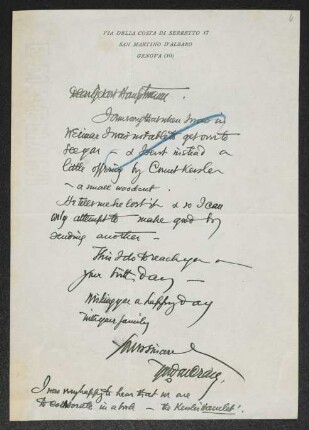 VIA DELLA COSTA DI SERRETTO 47
SAN MARTINO D'ALBARO
GENOVA (30)
Dear Gerhart Hauptmann.
I am sorry that when I was in
Weimar I was not able to get over to
see you — & I sent instead a
little offering by Count Kessler
— a small woodcut.
He tells me he lost it & so I can
only attempt to make good by
sending another —
This I do to reach you on
your birthday —
Wishing you a happy day
with your family
Yours sincerely
Craig.
I was very happy to hear that we are
to collaborate in a book — the Kessler Hamlet.